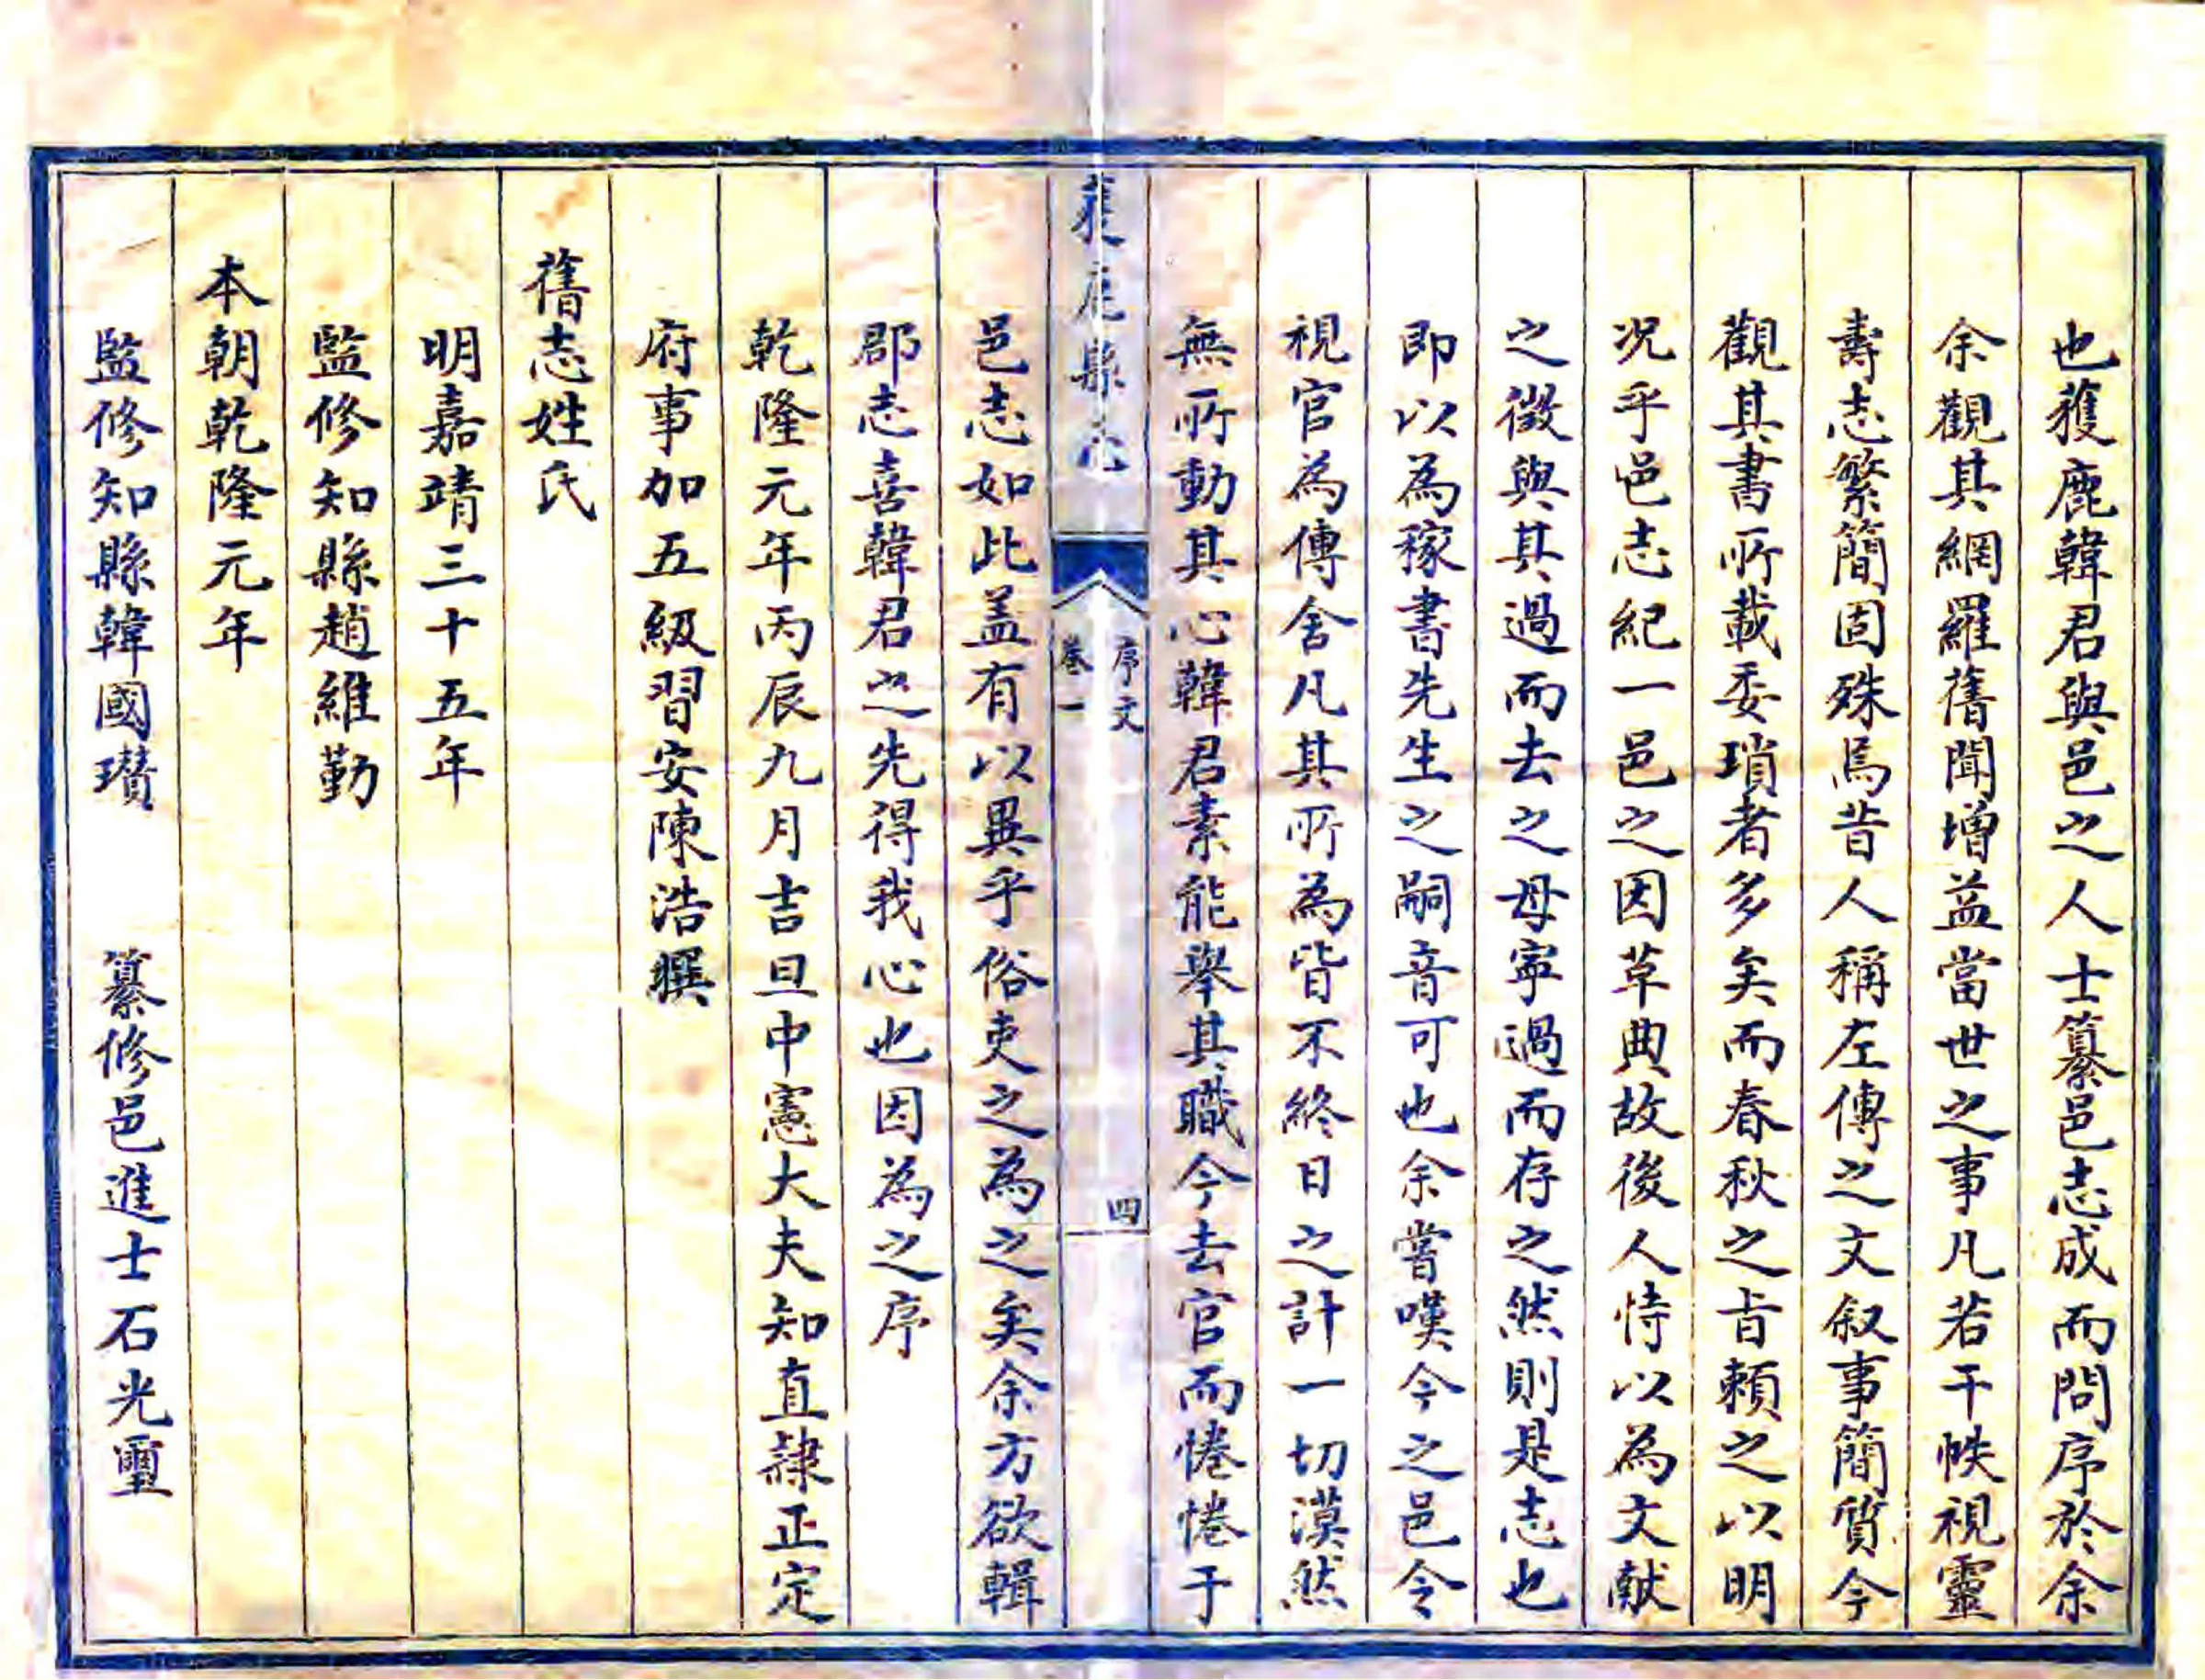 也獲鹿韓君與邑之人士纂邑志成而問序於余
余觀其網羅舊聞增益當世之事凡若干帙視靈
壽志繁簡固殊焉昔人稱左傳之文叙事簡質今
觀其書所載委瑣者多矣而春秋之旨賴之以明
况乎邑志紀一邑之因草典故後人恃以為文献
之徵與其過而去之母寧過而存之然則是志也
即以為稼書先生之嗣音可也余嘗嘆今之邑令
視官為傳舍凡其所為皆不終日之計一切漠然
無所動其心韓君素能舉其職今去官而惓惓于
獲鹿縣志
序文
卷一
四
邑志如此盖有以異乎俗吏之為之矣余方欲輯
郡志喜韓君之先得我心也因為之序
乾隆元年丙辰九月吉旦中憲大夫知直隸正定
府事加五級習安陳浩撰
舊志姓氏
明嘉靖三十五年
監修知縣趙維勤
本朝乾隆元年
監修知縣韓國瓚 纂修邑進士石光璽